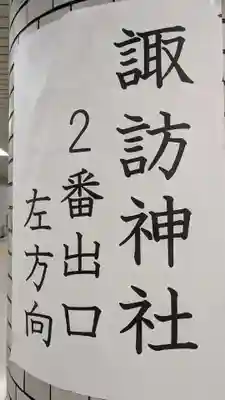 諏訪神社
2番出口
左方向